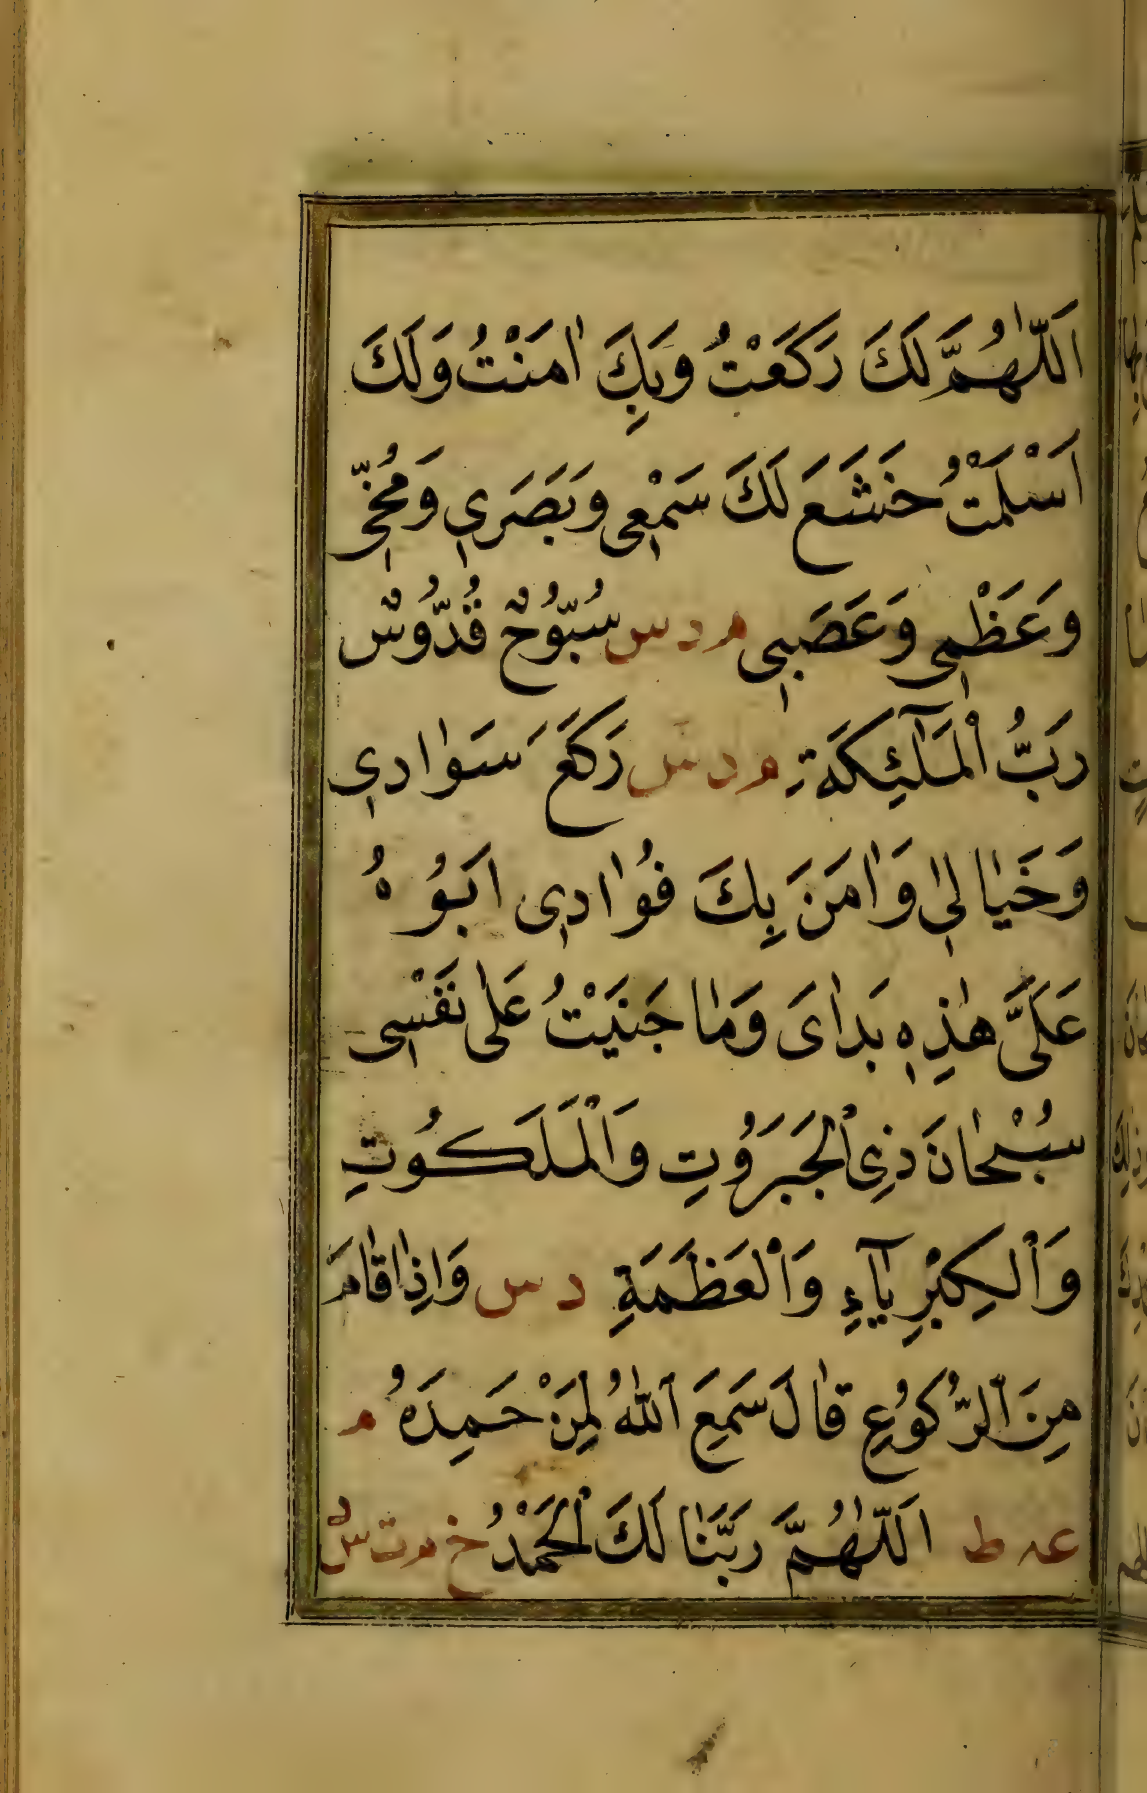 اَللّٰهُمَّ لَكَ رَكَعْتُ وَبِكَ اٰمَنْتُ وَلَكَ
اَسْلَمْتُ خَشَعَ لَكَ سَمْعِي وَبَصَرِي وَمُخِّي
وَعَظْمِي وَعَصَبِي م د س سُبُّوحٌ قُدُّوسٌ
رَبُّ الْمَلَآئِكَةِ م د س رَكَعَ سَوَادِي
وَخَيَالِي وَاٰمَنَ بِكَ فُوَادِي اَبُوُهُ
عَلَيَّ هٰذِهِ يَدَايَ وَمَا جَنَيْتُ عَلٰى نَفْسِي
سُبْحَانَ ذِي الْجَبَرُوتِ وَالْمَلَكُوتِ
وَالْكِبْرِيَآءِ وَالْعَظَمَةِ د س وَاِذَا قَامَ
مِنَ الرُّكُوعِ قَالَ سَمِعَ اللّٰهُ لِمَنْ حَمِدَهُ م
عه ط اَللّٰهُمَّ رَبَّنَا لَكَ الْحَمْدُ خ م ت س